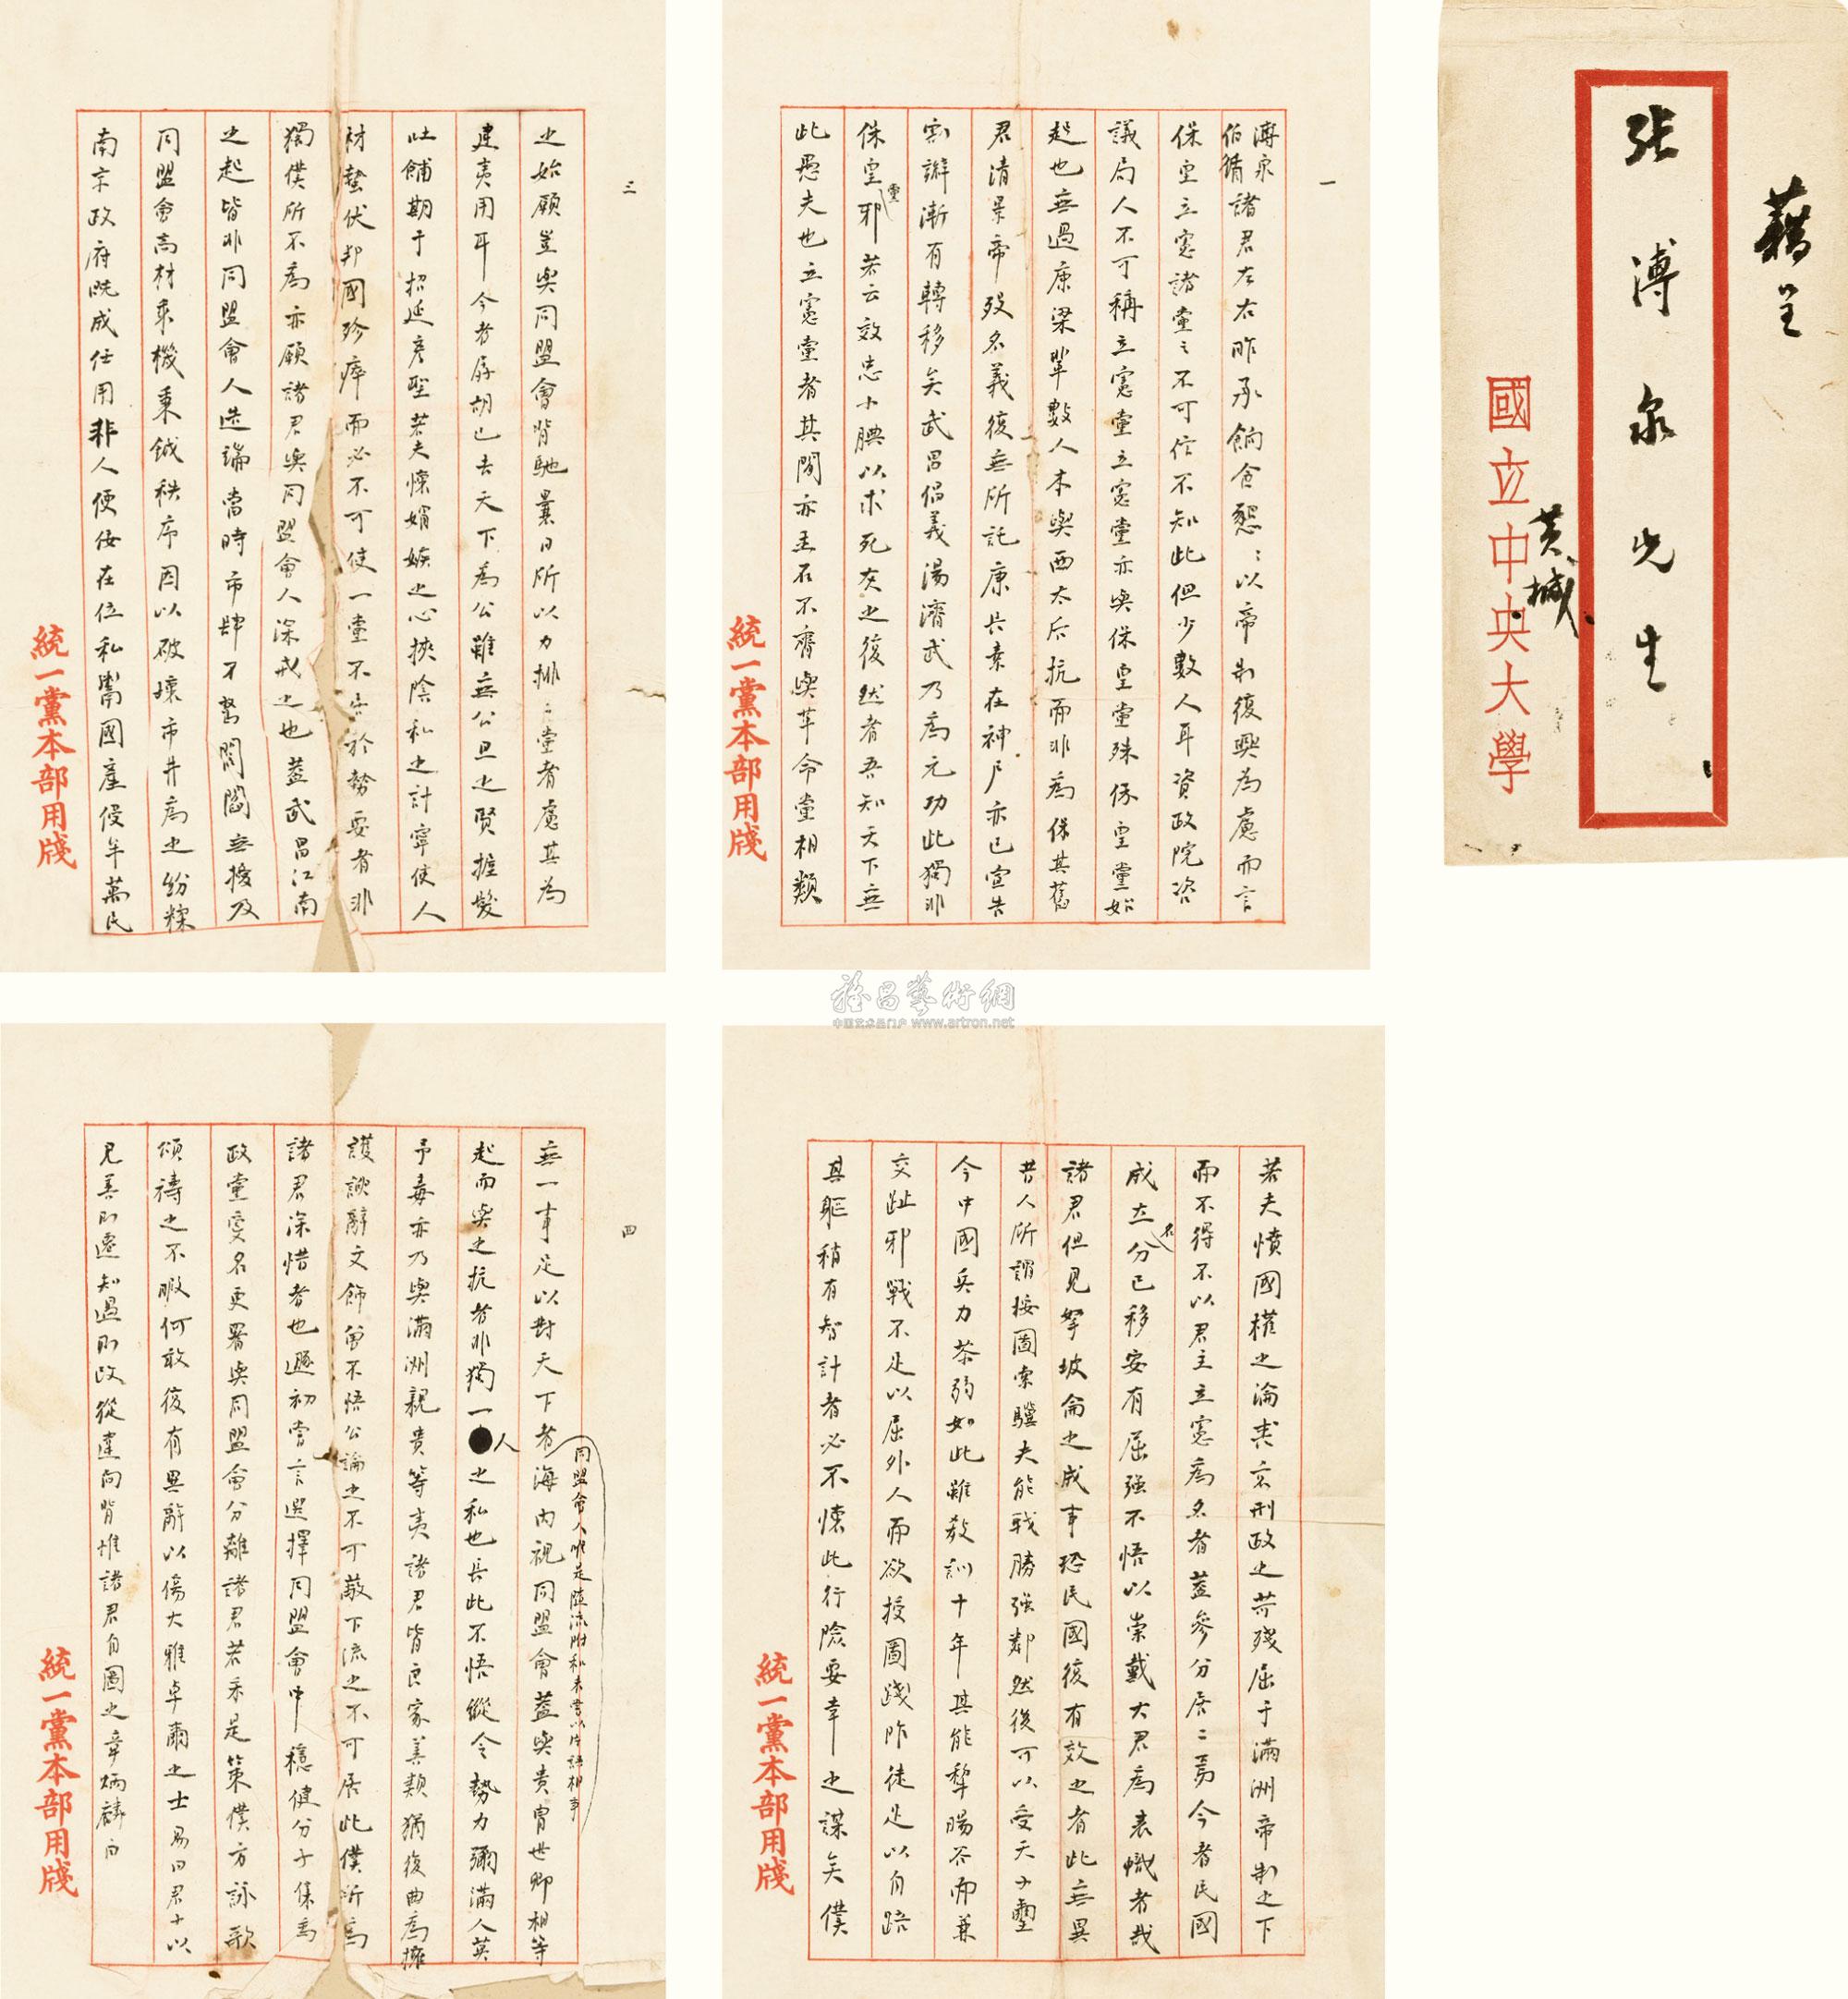 藉呈
張溥泉先生
黃椷
國立中央大學
一
溥泉
伯循諸君左右昨承餉食懇〻以帝制復興為慮而言
保皇立憲諸黨之不可信不知此但少數人耳資政院咨
議局人不可稱立憲黨立憲黨亦與保皇黨殊保皇黨始
起也無過康梁輩數人本與西太后抗而非為保其舊
君清景帝歿名義復無所託康長素在神戶亦已宣告
割辮漸有轉移矣武昌倡義湯濟武乃為元功此獨非
保皇黨邪若云效忠小腆以求死灰之復然者吾知天下無
此愚夫也立憲黨者其間亦玉石不齊與革命黨相類
統一黨本部用牋
若夫憤國權之淪喪哀刑政之苛殘屈于滿洲帝制之下
而不得不以君主立憲為名者蓋參分居二焉今者民國
成立名分已移安有屈強不悟以崇戴大君為表幟者哉
諸君但見拏坡侖之成事恐民國復有效之者此無異
昔人所謂按圖索驥夫能戰勝強鄰然後可以受天子璽
今中國兵力荼弱如此雖教訓十年其能犂暘谷而兼
交趾邪戰不足以屈外人而欲授圖踐阼徒足以自踣
其軀稍有智計者必不懷此行險要幸之謀矣僕
統一黨本部用牋
三
之始願豈與同盟會背馳曩日所以力排〻黨者慮其為
建夷用耳今者孱胡已去天下為公雖無公旦之賢握髮
吐餔期于招延彥聖若夫懷媢嫉之心挾陰私之計寧使人
材蟄伏邦國殄瘁而必不可使一黨不出於勢要者非
獨僕所不為亦願諸君與同盟會人深戒之也蓋武昌江南
之起皆非同盟會人造端當時市肆不驚閭閻無擾及
同盟會高材乘機秉鉞秩序因以破壞市井為之紛糅
南京政府既成任用非人便佞在位私鬻國產侵牟萬民
統一黨本部用牋
四
無一事足以對天下者同盟會人唯是隨流附和未嘗以片語相爭海內視同盟會蓋與貴胄世卿相等
起而與之抗者非獨一人之私也長此不悟縱令勢力彌滿人莫
予毒亦乃與滿洲親貴等夷諸君皆良家美類猶復曲為擁
護諛辭文飾曾不悟公論之不可蔽下流之不可居此僕所為
諸君深惜者也遯初嘗言選擇同盟會中穩健分子集為
政黨變名更署與同盟會分離諸君若采是策僕方詠歌
頌禱之不暇何敢復有異辭以傷大雅卓爾之士易曰君子以
見善則遷知過則改從違向背惟諸君自圖之章炳麟白
統一黨本部用牋
雅昌藝術網
中国艺术品门户 www.artron.net